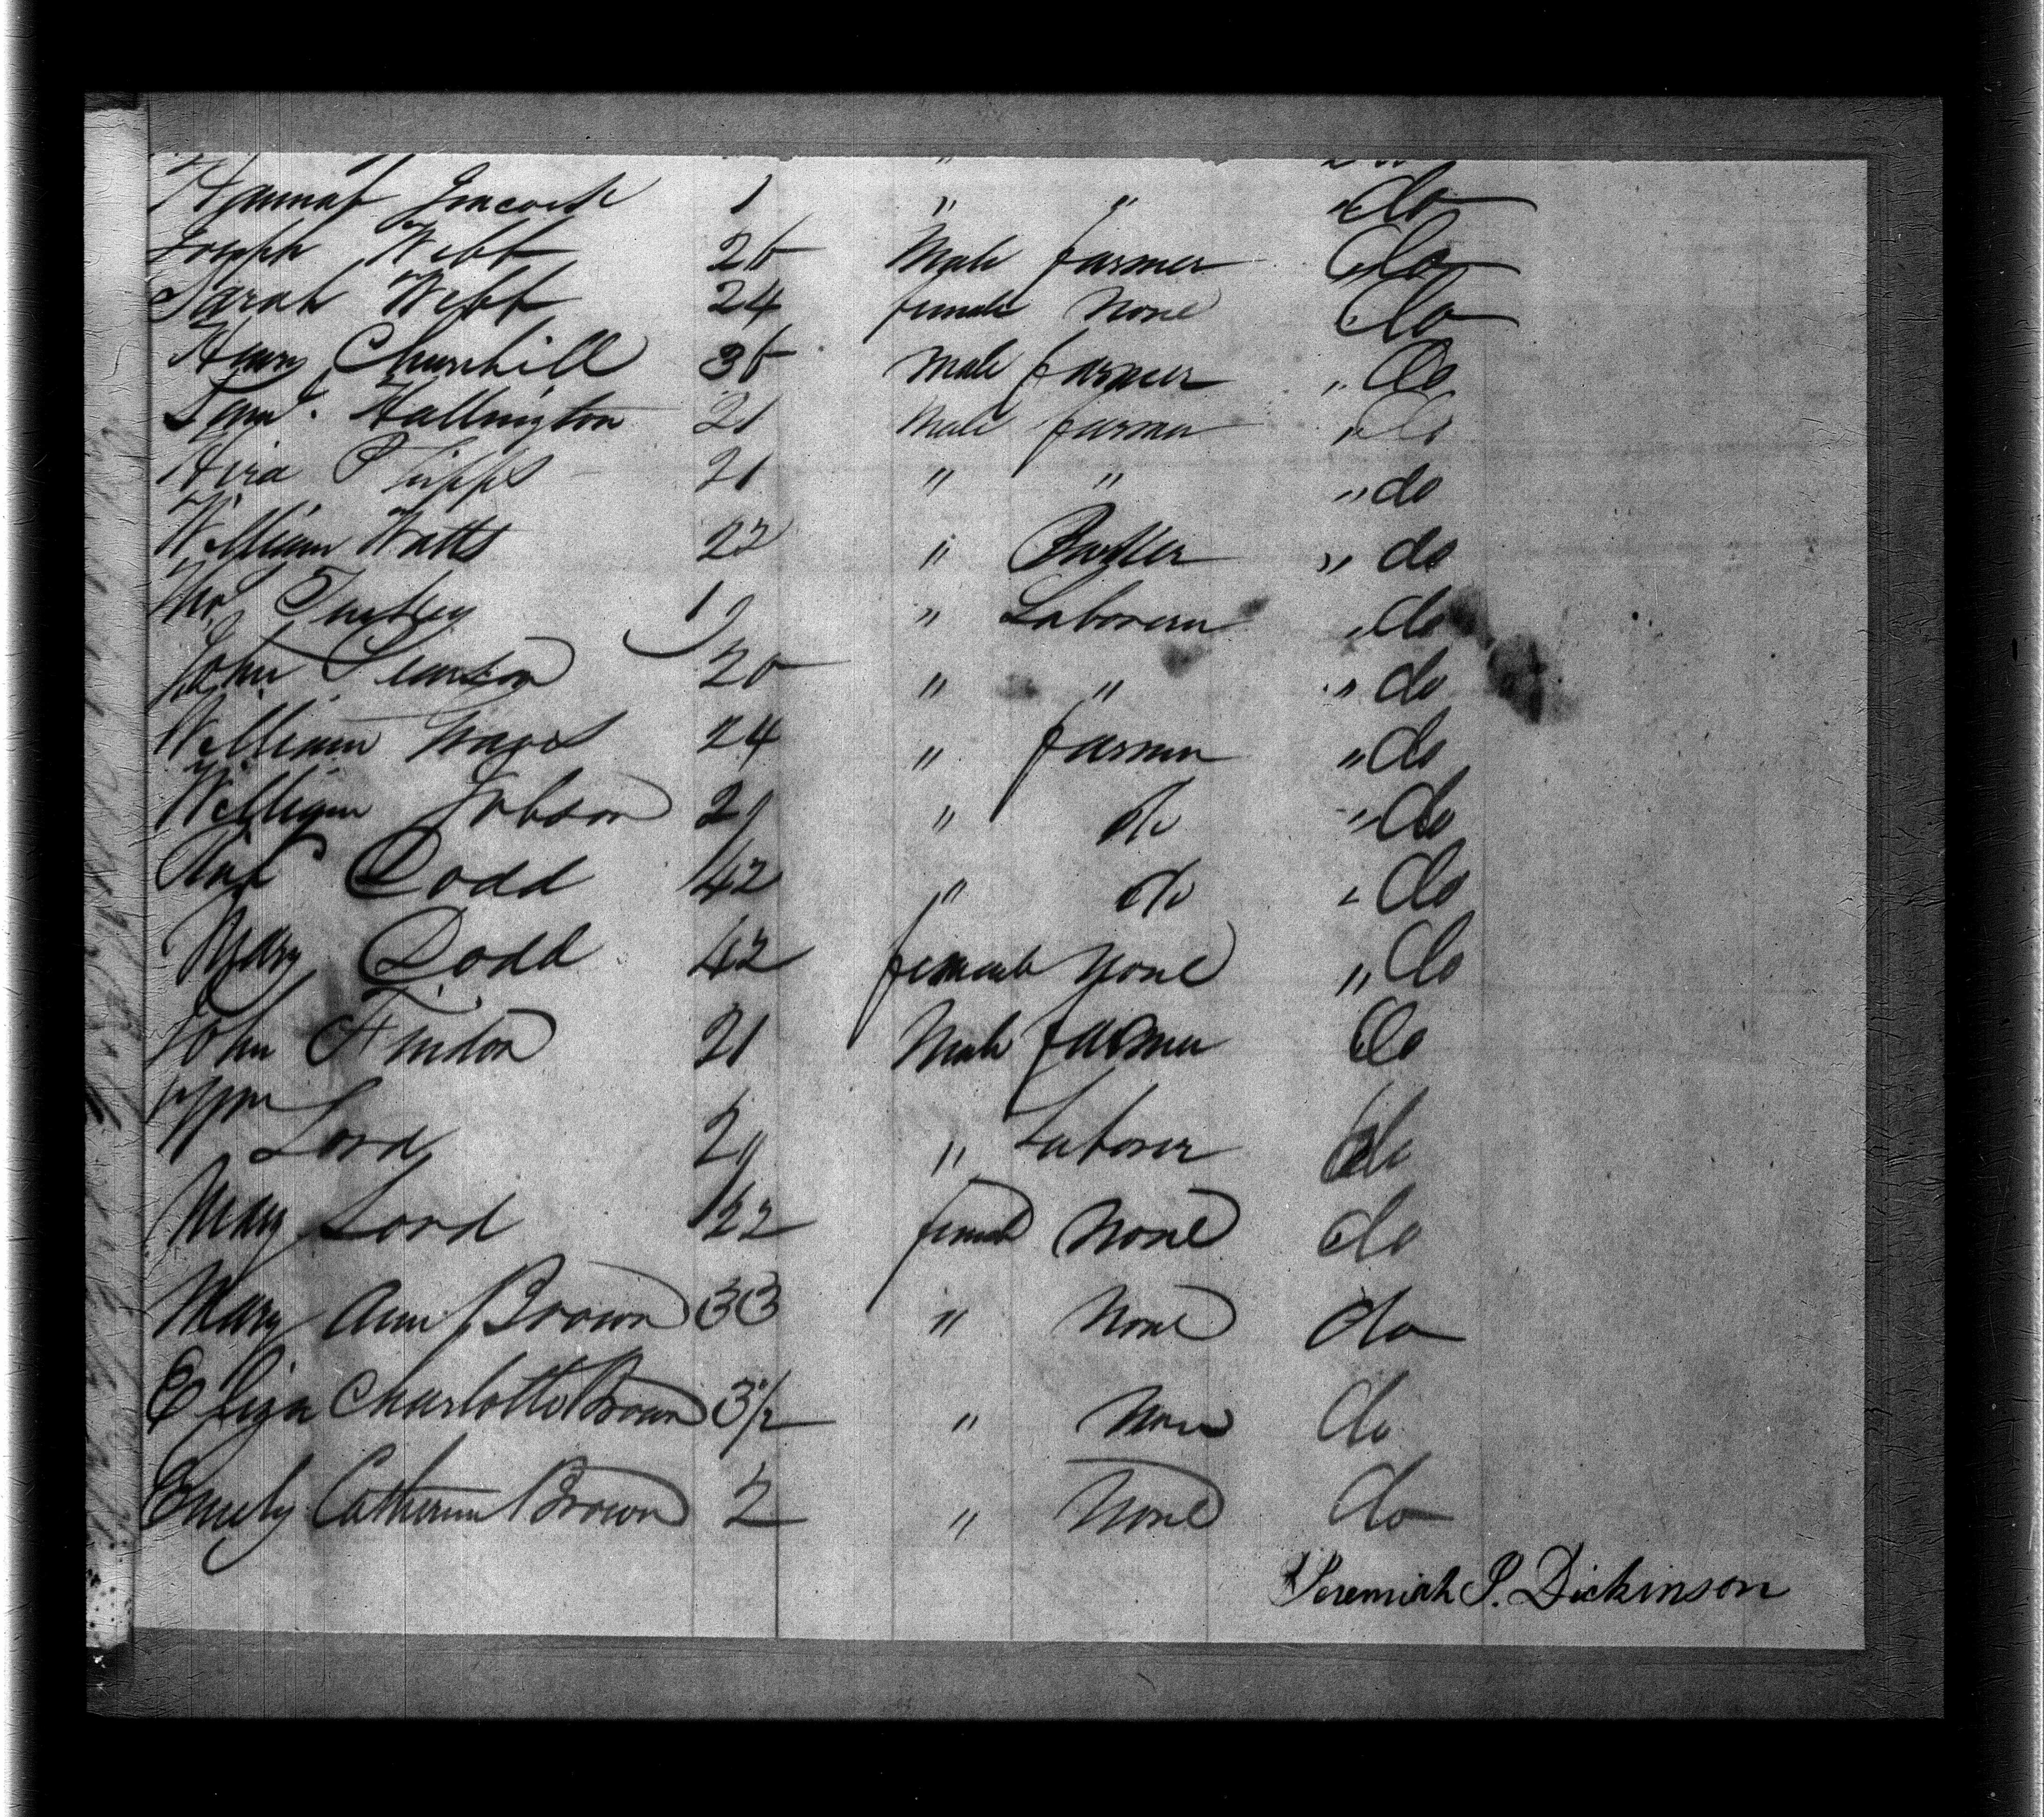 Hannah 1 " " " do
Joseph Webb 26 Male farmer do
Sarah Webb 24 female None do
Henry Churchill 36 Male farmer " do
Saml. Hallington 21 Male farmer " do
21 " " " do
William Watts 22 " " do
Thos 19 " Laborer " do
John 20 " " " do
William 24 " farmer " do
William Jobson 29 " do " do
Dodd 42 " do " do
Mary Dodd 42 female None " do
John 21 Male farmer do
Wm Lord 29 " Laborer do
Mary Lord 22 female None do
Mary Ann Brown 33 " None do
Eliza Charlotte Brown 3½ " None do
Emely Catherine Brown 2 " None do
Jeremiah P. Dickinson